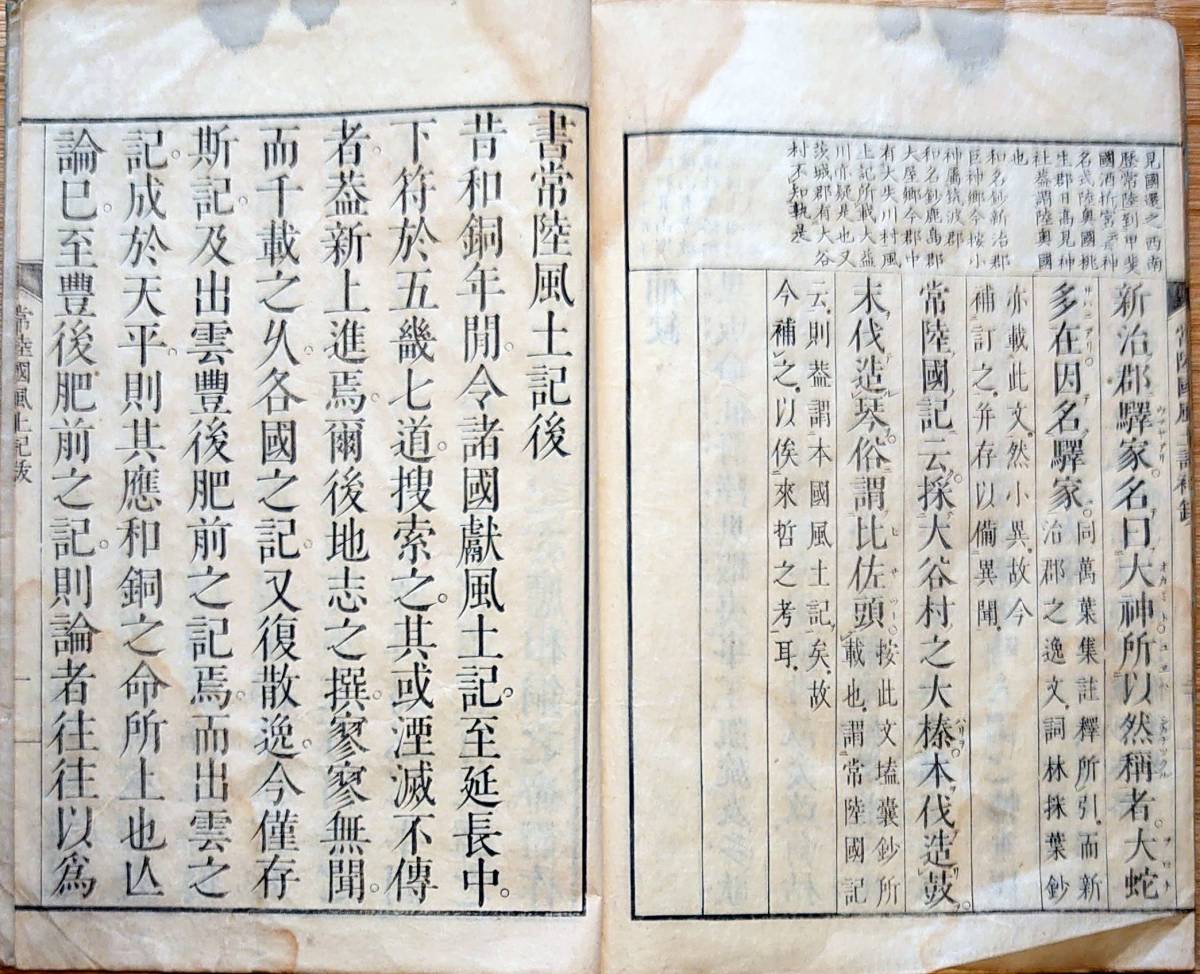 見國還之西南
歴常陸到甲斐
國酒折宮
名式陸奥國桃
生郡日高見神
社葢謂陸奥國
也
和名鈔新治郡
巨神郷今按小
神屬筑波郡
和名鈔鹿島郡
大屋郷今郡中
有大失川村風
上記所載大益
川亦疑是也又
茨城郡有大谷
村不知孰是
新治郡驛家名曰大神所以然稱者大蛇
多在因名驛家。同萬葉集註釋所引而新
治郡之逸文詞林採葉鈔
亦載此文然小異故今
補訂之并存以備異聞
常陸國記云採大谷村之大榛本伐造鼓
末伐造琴。俗謂比佐頭按此文壒嚢鈔所
載也謂常陸國記
云則葢謂本國風土記矣故
今補之以俟來哲之考耳
書常陸風土記後
昔和銅年閒。令諸國獻風土記。至延長中。
下符於五畿七道。搜索之。其或湮滅不傳
者。葢新上進焉。爾後地志之撰。寥寥無聞。
而千載之久各國之記。又復散逸。今僅存
斯記。及出雲豐後肥前之記焉。而出雲之
記。成於天平。則其應和銅之命所上也亾
論已。至豐後肥前之記。則論者往往以爲
常陸國風土記跋